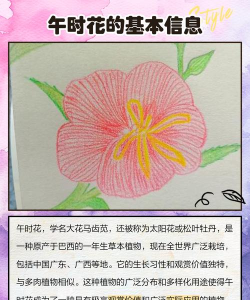 午时花的基本信息
Style
午时花，学名大花马齿苋，还被称为太阳花或松叶牡丹，是
一种原产于巴西的一年生草本植物，现在全世界广泛栽培，
包括中国广东、广西等地。它的生长习性和观赏价值独特，
与多肉植物相似。这种植物的广泛分布和多样化用途使得午
时花成为了一种具有极高观赏价值和广泛实际应用的植物